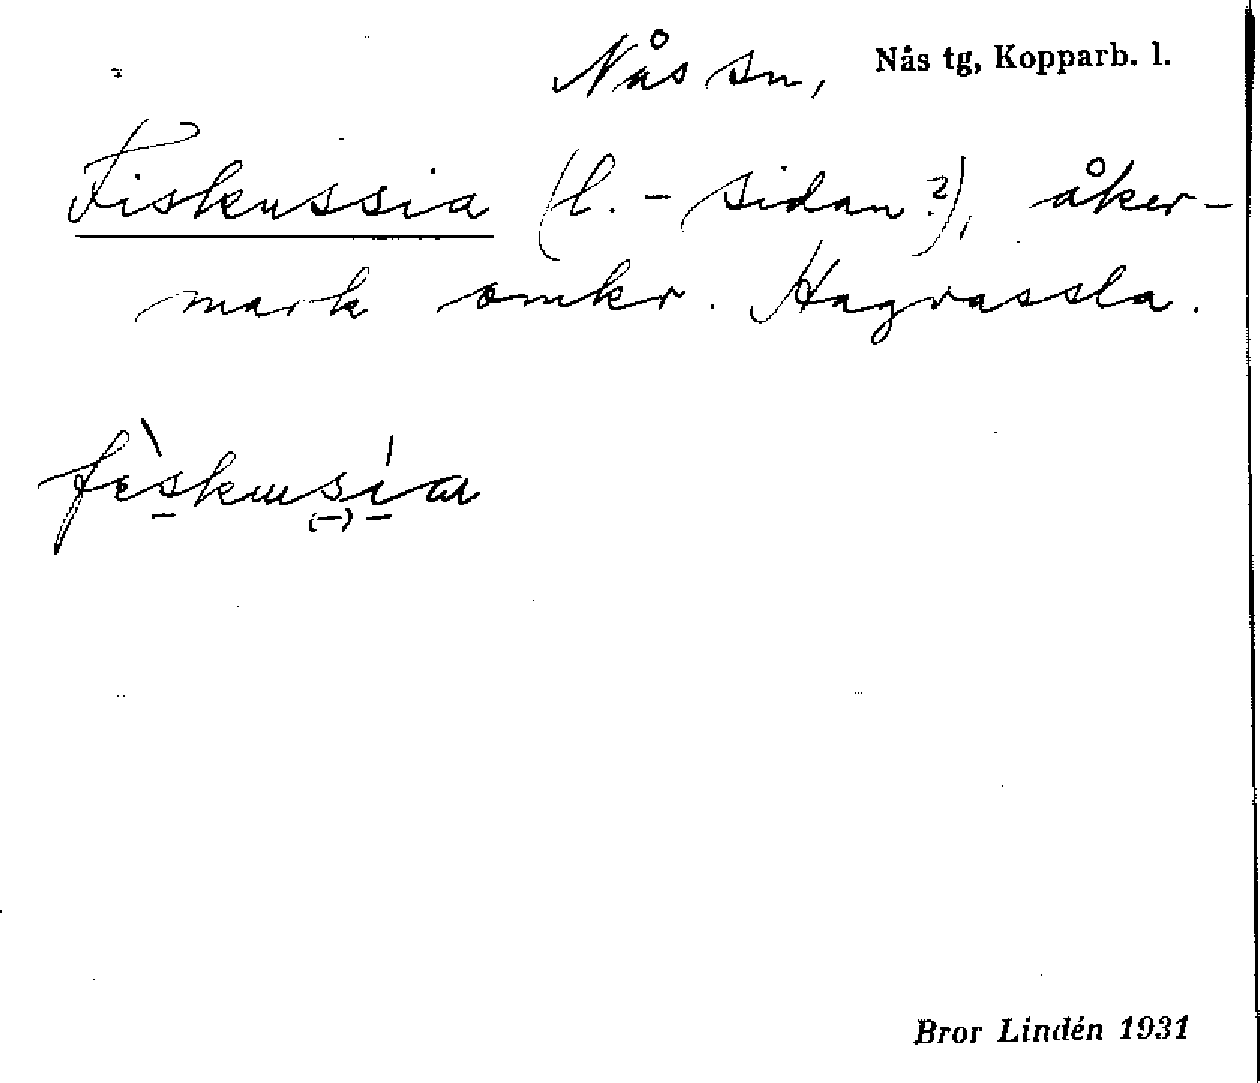 Nås sn, Nås tg, Kopparb. l.
Fiskussia (l. - sidan?), åker-
mark omkr. Hagvassla.
fìskusía
Bror Lindén 1931